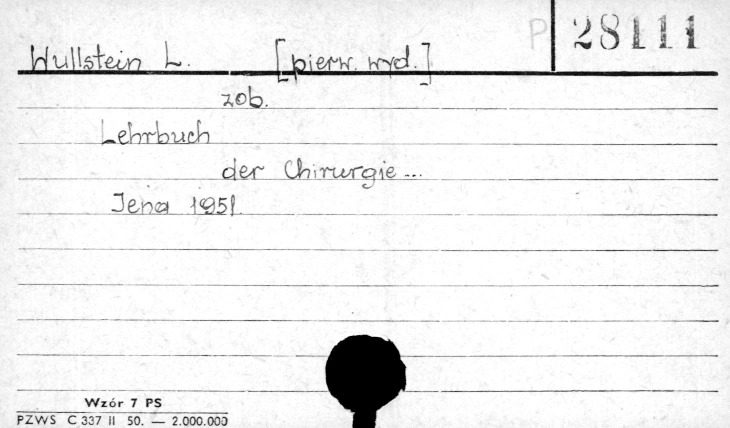 P 28111
Wullstein L. [pierw. wyd.]
zob.
Lehrbuch
der Chirurgie...
Jena 1951.
Wzór 7 PS
PZWS C 337 II 50. — 2.000.000